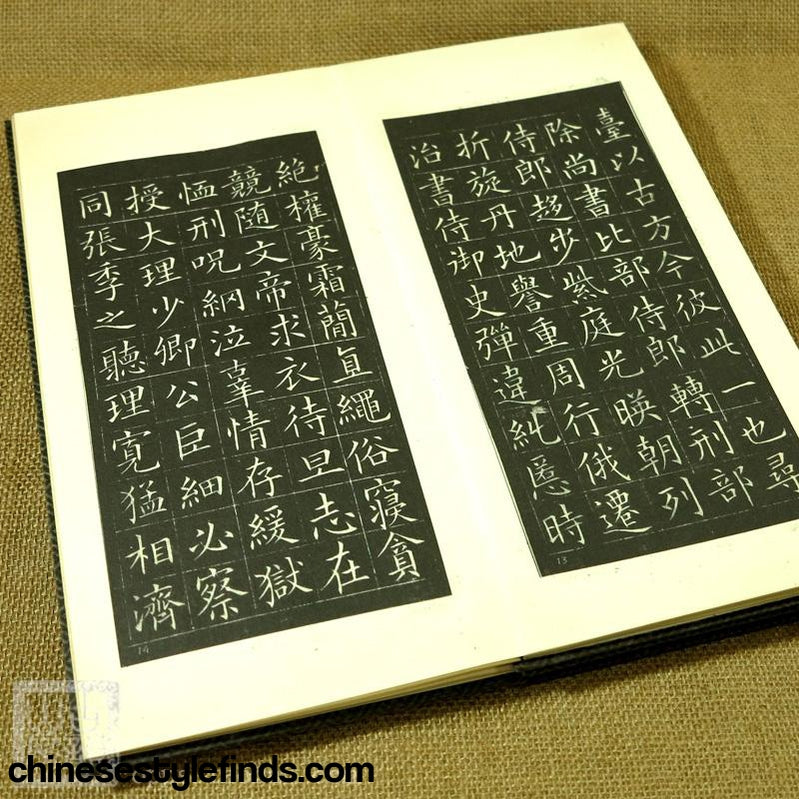 臺以古方今彼此一也尋
除尚書比部侍郎轉刑部
侍郎趍步紫庭光暎朝列
折旋丹地譽重周行俄遷
治書侍御史彈違糺慝時
13
絶權豪霜簡直繩俗寢貪
競随文帝求衣待旦志在
恤刑呪網泣辜情存緩獄
授大理少卿公臣細必察
同張季之聽理寛猛相濟
14
chinesestylefinds.com